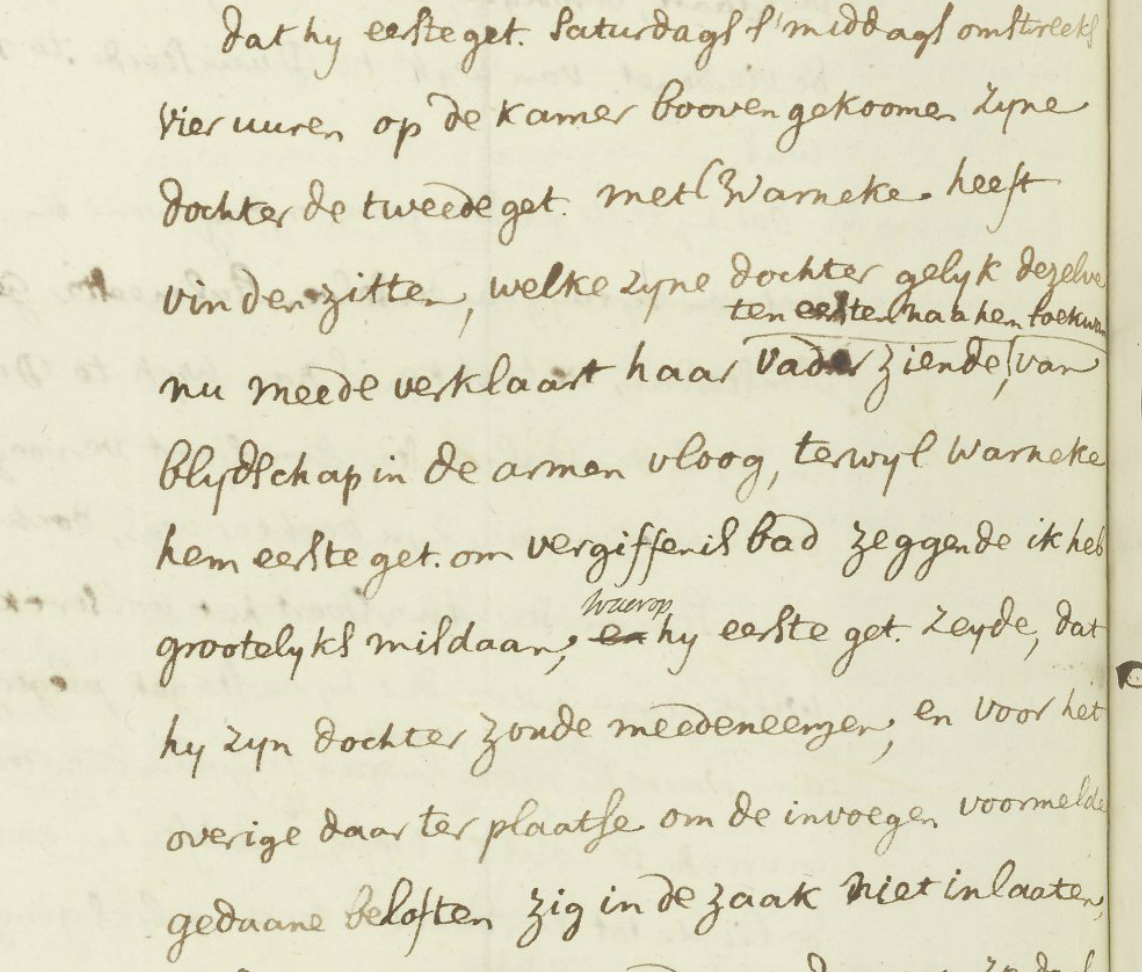 dat hy eerste get. Saturdags s' middags omstreeks
vier uuren op de kamer booven gekoomen zyne
dochter de tweede get. met Warneke heeft
vinden zitten, welke zyne dochter gelyk dezelve
ten eersten naa hem toekwam
nu meede verklaart haar vader ziende, van
blydschap in de armen vloog, terwyl Warneke
hem eerste get. om vergiffenis bad zeggende ik heb
waerop
grootelyks misdaan, en hy eerste get. zeyde, dat
hy zyn dochter zoude meedeneemen, en voor het
overige daar ter plaatse om de invoegen voormelde
gedaane beloften zig in de zaak niet inlaaten,